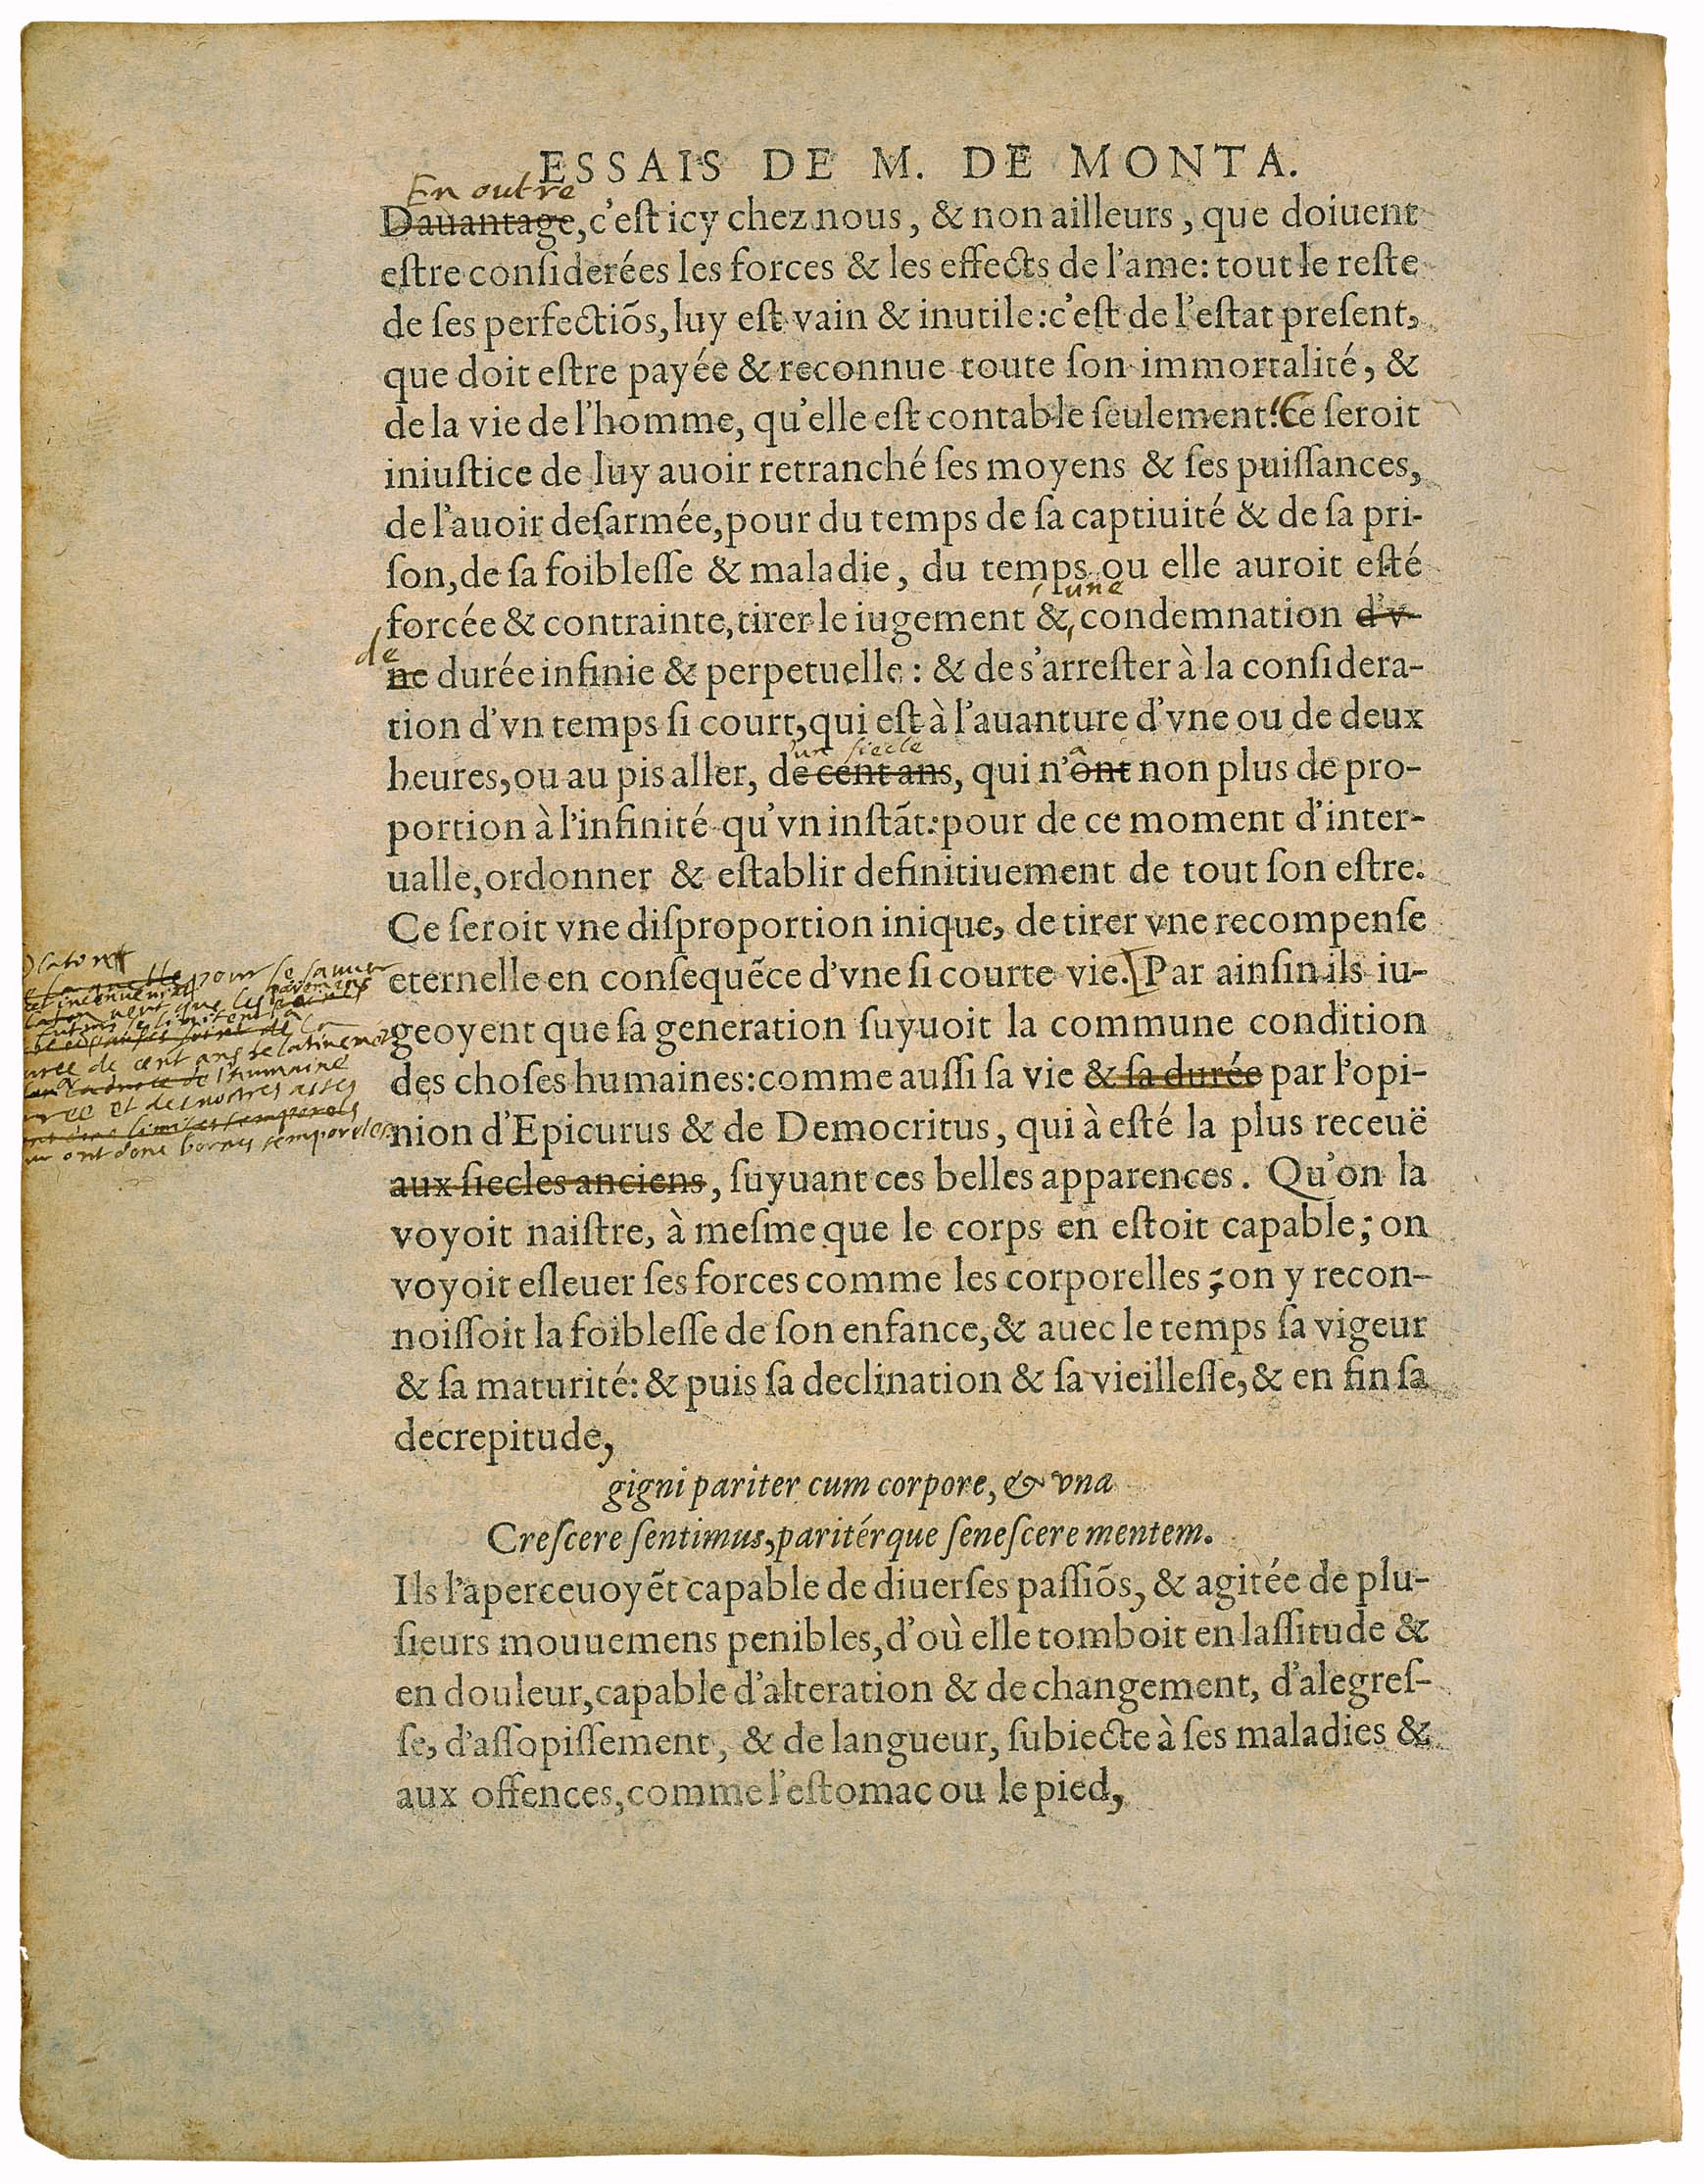 ESSAIS DE M. DE MONTA.
En outre
Dauantage, c'est icy chez nous, & non ailleurs, que doiuent
estre considerées les forces & les effects de l'ame: tout le reste
de ses perfectiõs, luy est vain & inutile: c'est de l'estat present,
que doit estre payée & reconnue toute son immortalité, &
de la vie de l'homme, qu'elle est contable seulement: Ce seroit
iniustice de luy auoir retranché ses moyens & ses puissances,
de l'auoir desarmée, pour du temps de sa captiuité & de sa pri-
son, de sa foiblesse & maladie, du temps ou elle auroit esté
une
forcée & contrainte, tirer le iugement & condemnation d'v-
de
ne durée infinie & perpetuelle: & de s'arrester à la considera-
tion d'vn temps si court, qui est à l'auanture d'vne ou de deux
un siecle a
heures, ou au pis aller, de cent ans, qui n'ont non plus de pro-
portion à l'infinité qu'vn instãt: pour de ce moment d'inter-
ualle, ordonner & establir definitiuement de tout son estre.
Ce seroit vne disproportion inique, de tirer vne recompense
eternelle en consequẽce d'vne si courte vie. Par ainsin ils iu-
geoyent que sa generation suyuoit la commune condition
des choses humaines: comme aussi sa vie & sa durée par l'opi-
nion d'Epicurus & de Democritus, qui à esté la plus receuë
aux siecles anciens, suyuant ces belles apparences. Qu'on la
voyoit naistre, à mesme que le corps en estoit capable; on
voyoit esleuer ses forces comme les corporelles; on y recon-
noissoit la foiblesse de son enfance, & auec le temps sa vigeur
& sa maturité: & puis sa declination & sa vieillesse, & en fin sa
decrepitude,
gigni pariter cum corpore, & vna
Crescere sentimus, paritérque senescere mentem.
Ils l'aperceuoyẽt capable de diuerses passiõs, & agitée de plu-
sieurs mouuemens penibles, d'où elle tomboit en lassitude &
en douleur, capable d'alteration & de changement, d'alegres-
se, d'assopissement, & de langueur, subiecte à ses maladies &
aux offences, comme l'estomac ou le pied,
pour se sauver
que les
de cent ans
de l'humaine
et des nostres asses
ont done bornes temporeles